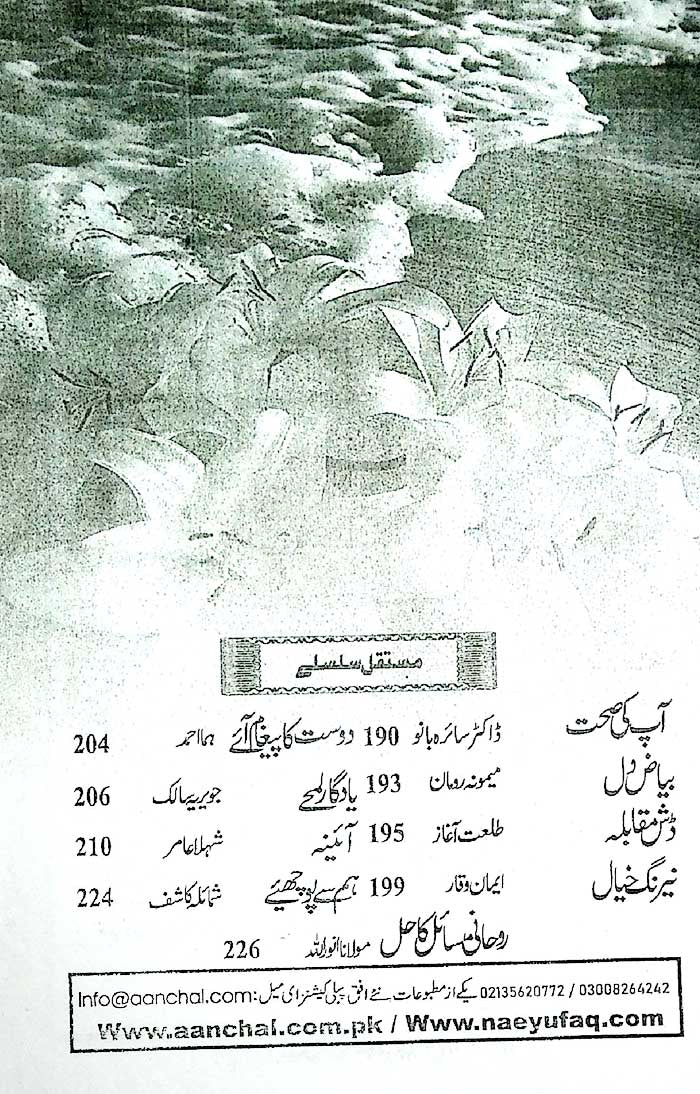 مستقل سلسلے
آپ کی صحت ڈاکٹر سائرہ بانو 190 دوست کا پیغام آئے ہما احمد 204
بیاض دل میمونہ رومان 193 یادگار لمحے جویریہ سالک 206
ڈش مقابلہ طلعت آغاز 195 آئینہ شہلا عامر 210
نیرنگ خیال ایمان وقار 199 ہم سے پوچھیئے شمائلہ کاشف 224
روحانی مسائل کا حل مولانا انور اللہ 226
02135620772 / 03008264242 یکے از مطبوعات نئے افق پبلی کیشنز ای میل: Info@aanchal.com
Www.aanchal.com.pk / Www.naeyufaq.com